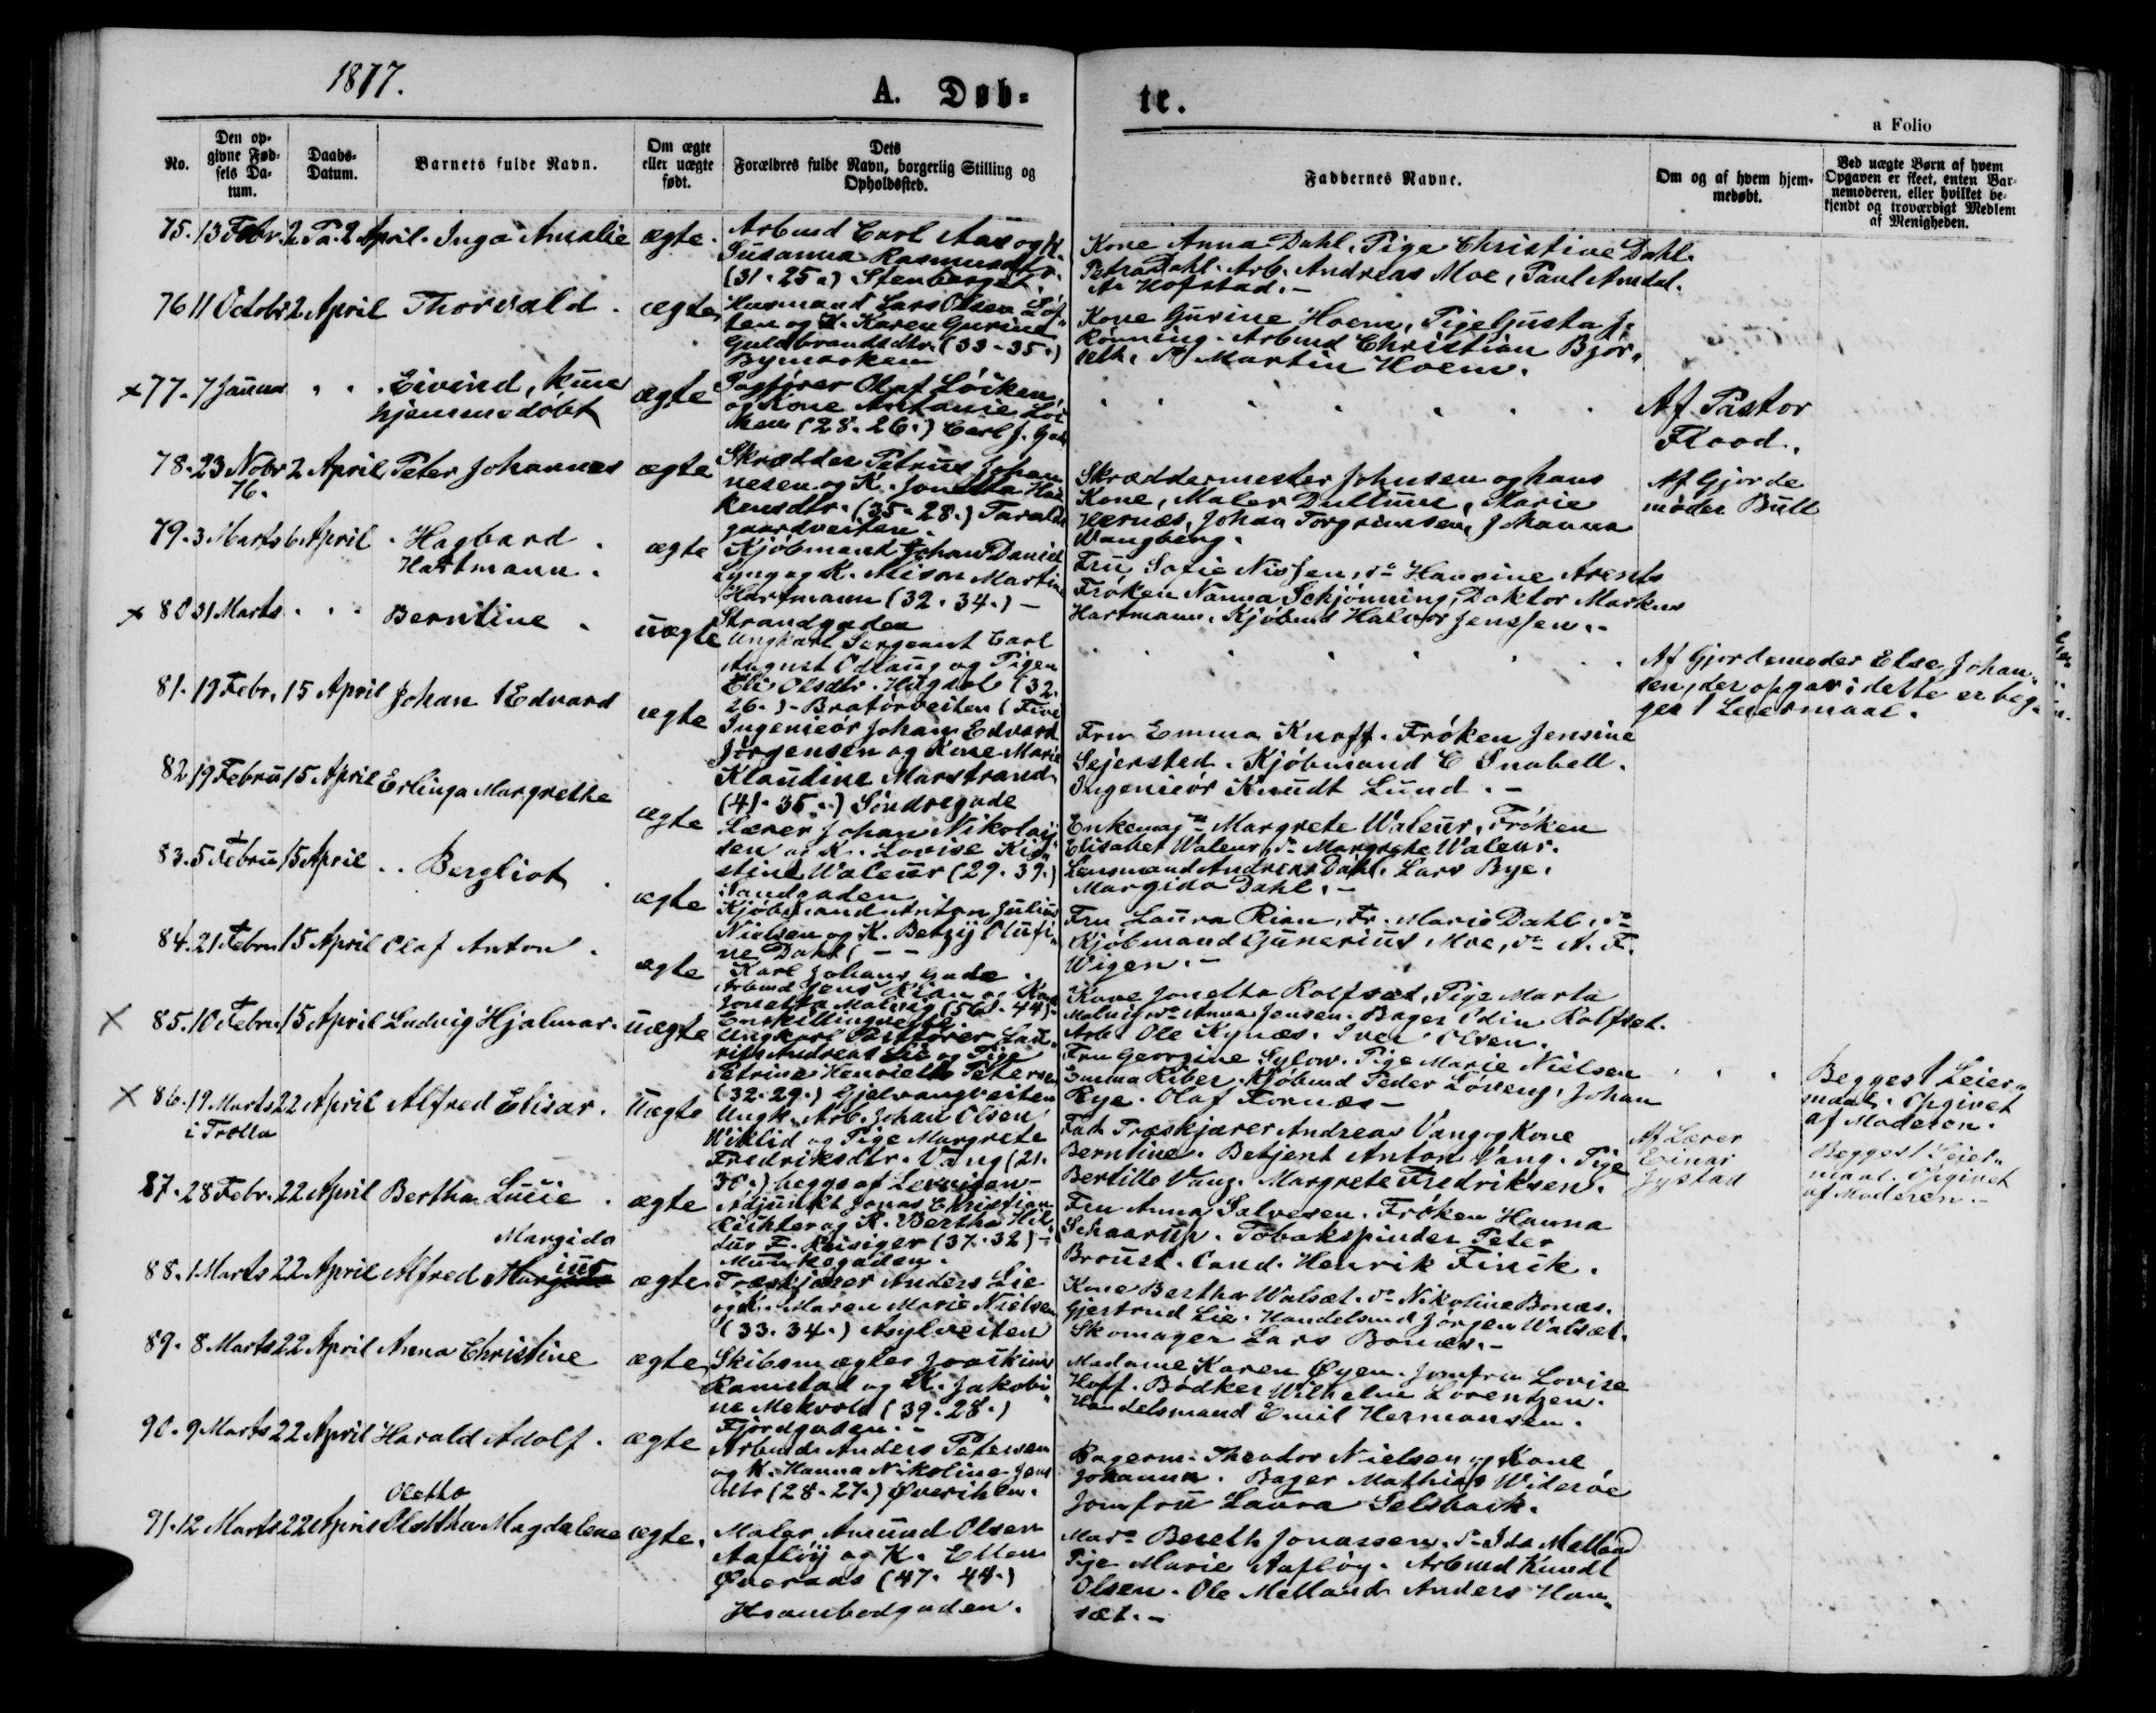 1877.
A. Døb-
te.
a Folio
No.
Den op-
givne Fød-
sels Da-
tum.
Daabs-
Datum.
Barnets fulde Navn.
Om ægte
eller uægte
født.
Dets
Forældres fulde Navn, borgerlig Stilling og
Opholdssted.
Faddernes Navne.
Om og af hvem hjem-
medøbt.
Ved uægte Børn af hvem
Opgaven er skeet, enten Bar-
nemoderen, eller hvilket be-
kjendt og troværdigt Medlem
af Menigheden.
75. 13 Febr. 2 Pa. 2 April. Inga Amalie ægte.
Arbmd Carl Aas og K.
Susanna Rasmusdtr.
(31. 25.) Stenberget
Kone Anna Dahl, Pige Christine Dahl.
Petra Dahl. Arb. Andreas Moe, Paul Amdal.
A. Hofstad.-
76 11 Octobr 2 April Thorvald. ægte
Husmand Lars Olsen Løf-
ten og K. Karen Gurine
Guldbrandsdtr. (33-35.)
Bymarken
Kone Gurine Hoem, Pige Gusta J.
Rønning. Arbmd Christian Bjør-
seth, do Martin Hoem.
x 77. 7 Januar " " Eivind, kun
hjemmedøbt ægte
Fogfører Olaf Løiken,
og Kone Antonie Løi-
ken (28. 26.) Carl J. Gad
Af Pastor
Flood.
78. 23 Nobr 2 April Peter Johannes ægte
76.
Skrædder Petrus Johan
nesen og K. Jonetta Haa
kensdtr. (35-28.) Taralds
gaardveiten.
Skræddermester Johnsen og hans
Kone, Maler Dullum, Marie
Hernæs, Johan Torgrimsen, Johanna
Wangberg.
Af Gjorde
moder Bull
79. 3 Marts 6 April Hagbard
Hartmann. ægte
Kjøbmand Johan Daniel
Lyng og K. Alison Martine
Hartmann (32. 34.) -
Strandgaden
Fru Sofie Nissen, do Hansine Arentz
Frøken Nanna Schjønning, Doktor Markus
Hartmann, Kjøbmd Halvor Jenssen.-
x 80 31 Marts " " Berntine. uægte
Ungkarl Sergeant Carl
August Odlaug og Pigen
Eli Olsdtr. Hugaal (32.
26.)- Bratørveiten
Af Gjordemoder Else Johan-
sen, der opgav: dette er beg-
ges 1 Leiermaal.
81. 19 Febr. 15 April Johan Edvard ægte
Ingeniør Johan Edvard
Jørgensen og Kone Marie
Klaudine Marstrand
(41. 35..) Søndregade
Fru Emma Knoff. Frøken Jensine
Sejersted. Kjøbmand C Snabell.
Ingeniør Knudt Lund.-
82 19 Febru 15 April Erlinga Margrethe ægte
Lærer Johan Nikolaij
sen og K. Lovise Kid-
stine Waleur (29. 39.)
Sandgaden
Enkemad. Margrete Waleur, Frøken
Elisabet Waleur, do Margrete Waleur.
Lensmand Andreas Dahl. Lars Bye.
Margido Dahl.-
83. 5 Febru 15 April .. Bergliot ægte
Kjøbmand Anton Julius
Nielsen og K. Betzij Olufi-
ne Dahl ( - -
Karl Johans gade.
Fru Laura Rian, Fr. Marie Dahl, do
Kjøbmand Gunerius Moe, do A. F.
Wigen.-
84. 21 Febru 15 April Olaf Anton. ægte
Arbmd Jens Rian og Kone
Jonetta Malvig (56. 44)-
Enskillingveite.
Kone Jonetta Rolfsæt, Pige Marta
Malvig, do Anna Jensen. Bager Edin Rolfset.
Arb. Ole Rynæs. Iver Olsen.
x 85. 10 Febru 15 April Ludvig Hjalmar. uægte
Ungkarl Postfører Lau-
rits Andreas Lie og Pige
Petrine Henriette Petersen
(32. 29.) Gjelvangveiten
Fru Georgine Sylow. Pige Marie Nielsen
Emma Riber. Kjøbmd Peder Løveng. Johan
Rye. Olaf Fornæs-
Begges 1 Leier-
maal. Opgivet
af Moderen.
x 86. 19 Marts 22 April Alfred Elisar. Uægte
i Trolla
Ungk. Arb. Johan Olsen
Wiklid og Pige Margrete
Fredriksdtr. Vang (21.
30.) begge af Levrigan-
Fad. Træskjærer Andreas Vang og Kone
Berntine. Betjent Anton Vang. Pige
Bertille Vang. Margrete Fredriksen.
Af Lærer
Einar
Jystad
Begges 1 Leier-
maal. Opgivet
af Moderen.-
87. 28 Febr. 22 April Bertha Lucie. ægte
Adjunkt Jonas Christian
Richter og K. Bertha Hil-
dur F. Reisiger (37. 32)-
Munkegaden.
Fru Anna Salvesen. Frøken Hanna
Schaarup. Tobakspinder Peter
Broust. Cand. Henrik Finck.
Margido
88. 1 Marts 22 April Alfred Margidius ægte
Træskjærer Anders Lie
og K. Maren Marie Nielsen
(33. 34.) Asylveiten
Kone Bertha Walsæt. do Nikoline Bonæs.
Gjertrud Lie. Handelsmd Jørgen Walsæt.
Skomager Lars Bonæs.-
89. 8 Marts 22 April Anna Christine ægte
Skibsmægler Joackim
Ramstad og K. Jakobi-
ne Mekvold (39. 28.)
Fjordgaden.-
Madame Karen Øyen. Jomfru Lovise
Hoff. Bødker Wilhelm Lorentzen.
Handelsmand Emil Hermansen.
90. 9 Marts 22 April Harald Adolf. ægte
Arbmd. Anders Petersen
og K. Hanna Nikoline Jens
dtr (28. 27.) Øverilsen.
Bagerm. Theodor Nielsen og Kone
Johanna. Bager Mathias Widerøe
Jomfru Laura Selsbach.
Oletta
91. 12 Marts 22 April Olettha Magdalene ægte.
Maler Amund Olsen
Aafløij og K. Ellen
Øveraas (47. 44.)
Krambodgaden.
Mad. Bereth Jonassen. do Ida Melland
Pige Marie Aafløy. Arbmd Knudt
Olsen. Ole Melland. Anders Ham-
sæt.-